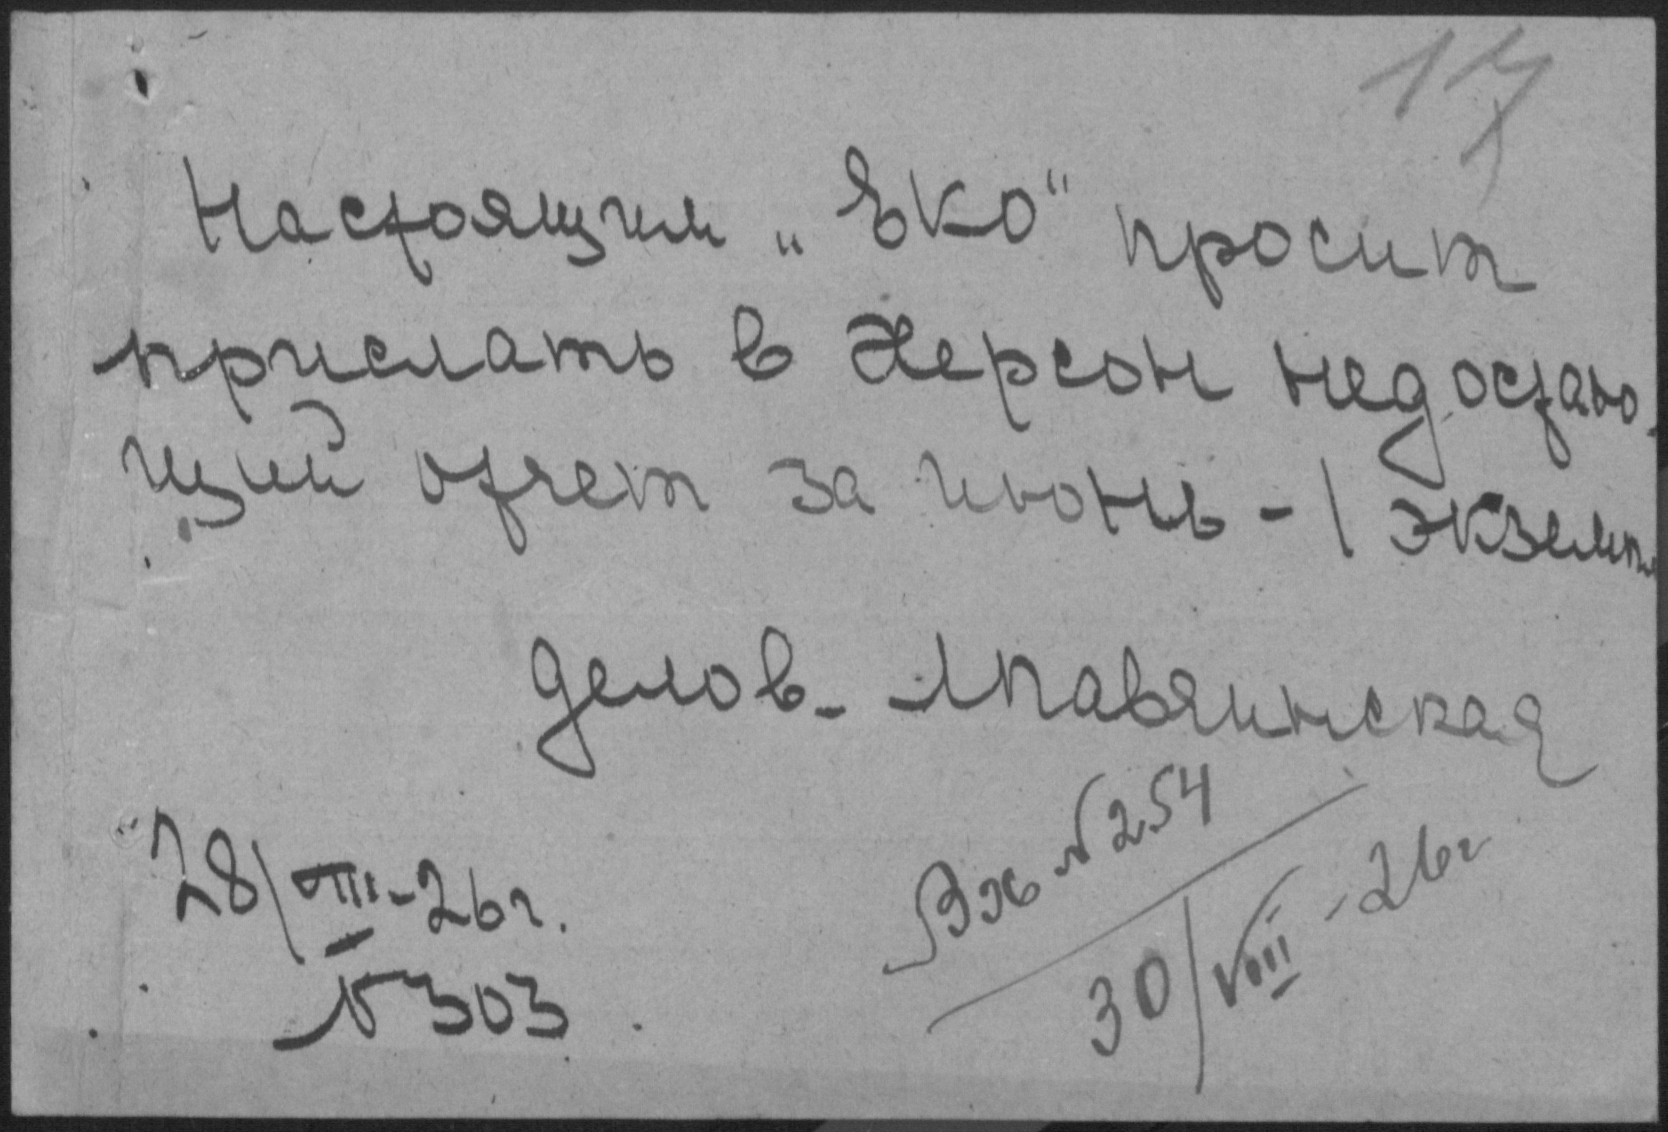 17
Настоящим „ЕКО" просит
прислать в Херсон недостаю-
щий отчет за июнь - 1 экземп.
Делов-
28/VIII-26 г.
№ 303
Вх № 254
30/VIII-26 г